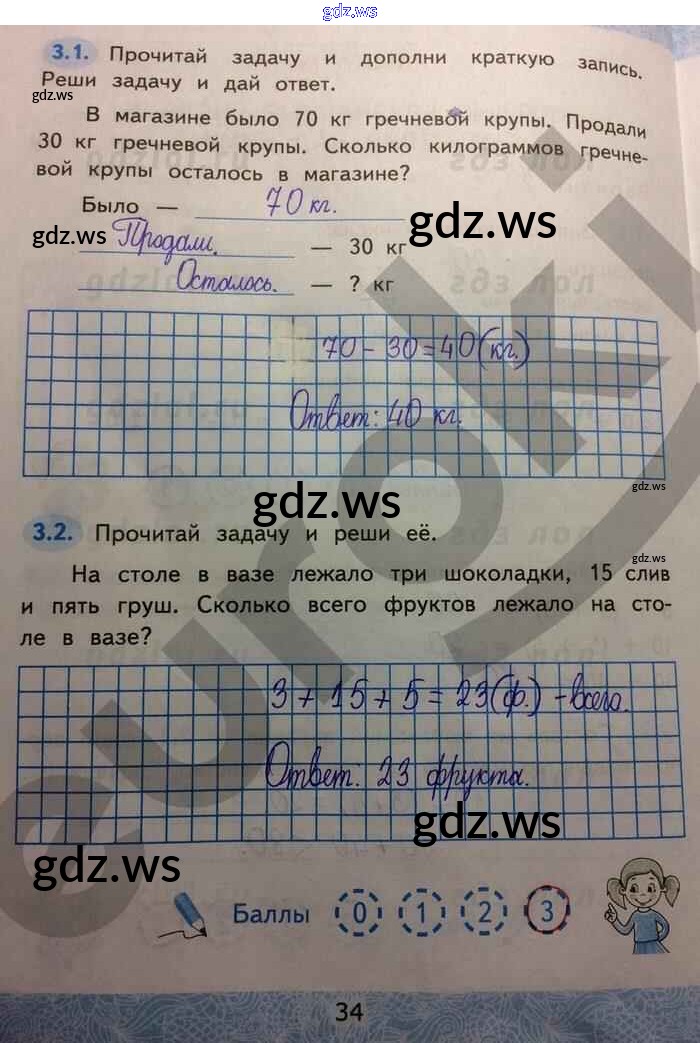 gdz.ws
3.1. Прочитай задачу и дополни краткую запись.
Реши задачу и дай ответ.
gdz.ws
В магазине было 70 кг гречневой крупы. Продали
30 кг гречневой крупы. Сколько килограммов гречне-
вой крупы осталось в магазине?
Было — 70 кг.
gdz.ws
gdz.ws
Продали. — 30 кг
Осталось. — ? кг
70 - 30 = 40 (кг.)
Ответ: 40 кг.
gdz.ws
gdz.ws
3.2. Прочитай задачу и реши её.
gdz.ws
На столе в вазе лежало три шоколадки, 15 слив
и пять груш. Сколько всего фруктов лежало на сто-
ле в вазе?
3 + 15 + 5 = 23 (ф.) - всего.
Ответ: 23 фрукта.
gdz.ws
gdz.ws
Баллы 0 1 2 3
34
euroki